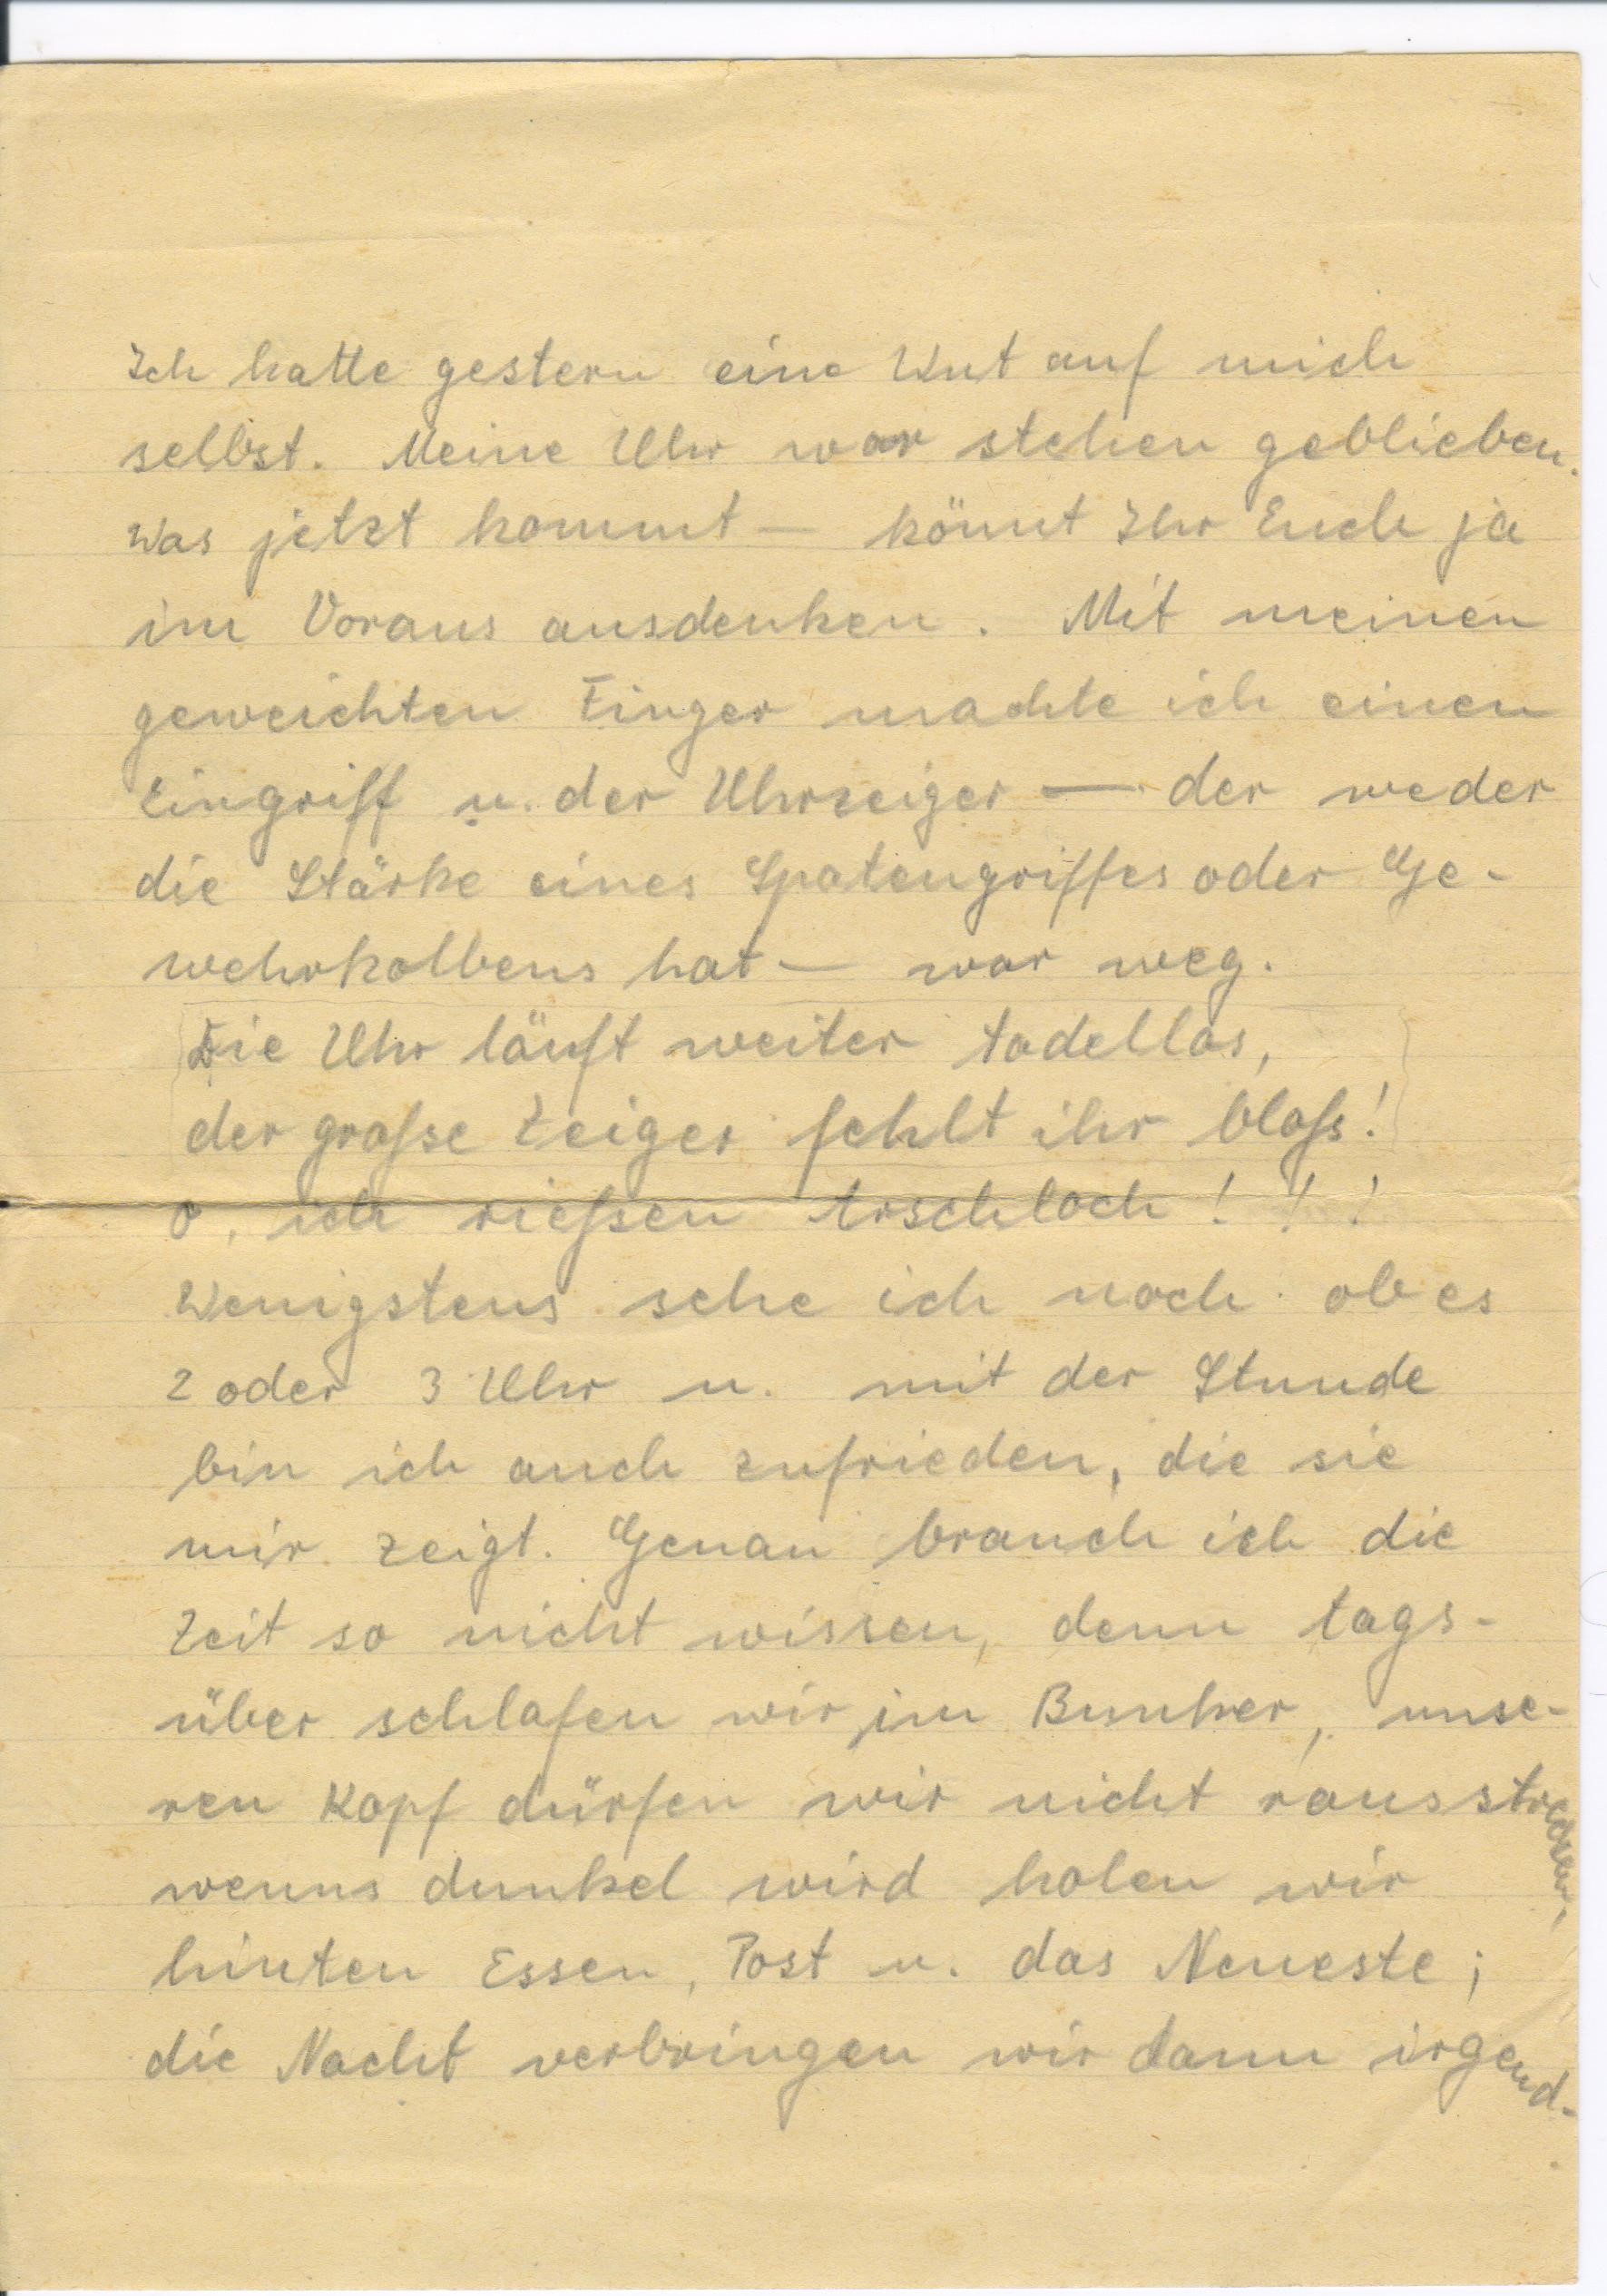 Ich hatte gestern eine Wut auf mich
selbst. Meine Uhr war stehen geblieben.
Was jetzt kommt — könnt Ihr Euch ja
im Voraus ausdenken. Mit meinen
geweichten Finger machte ich einen
Eingriff u. der Uhrzeiger — der weder
die Stärke eines Spatengriffes oder Ge-
wehrkolbens hat — war weg.
Die Uhr läuft weiter tadellos,
der große Zeiger fehlt ihr bloß!
O, ich rießen Arschloch!!!
Wenigstens sehe ich noch ob es
2 oder 3 Uhr u. mit der Stunde
bin ich auch zufrieden, die sie
mir zeigt. Genau brauch ich die
Zeit so nicht wissen, denn tags-
über schlafen wir im Bunker, unse-
ren Kopf dürfen wir nicht rausstrecken,
wenns dunkel wird holen wir
hinten Essen, Post u. das Neueste;
die Nacht verbringen wir dann irgend-